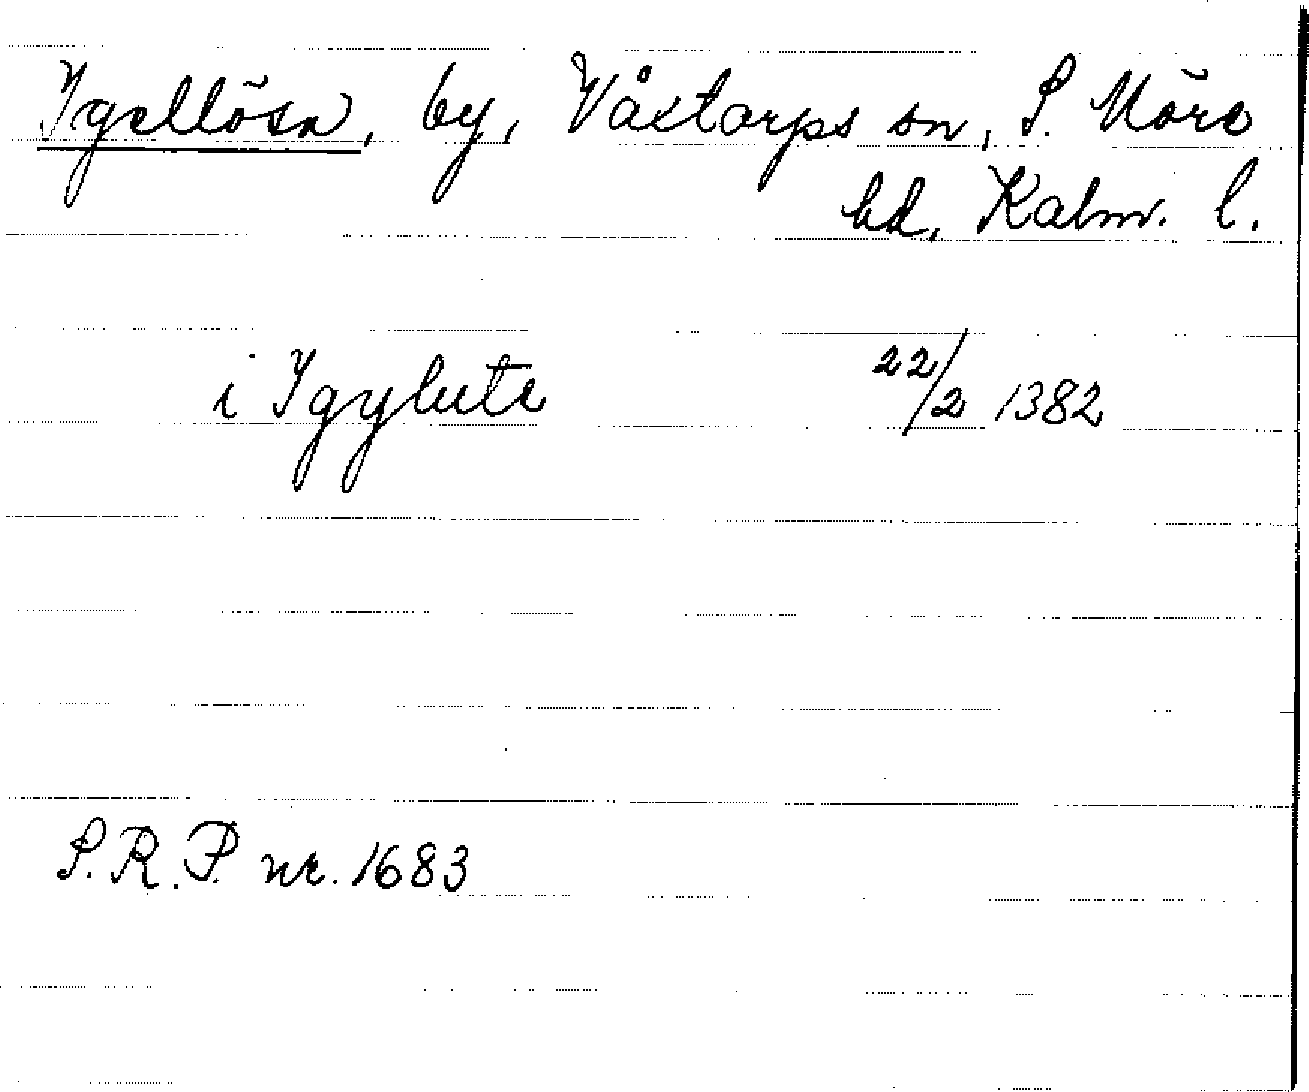 Igellösa, by, Våxtorps sn, S. Möre
hd, Kalm. l.
i Igylute 22/2 1382
S.R.P. nr. 1683